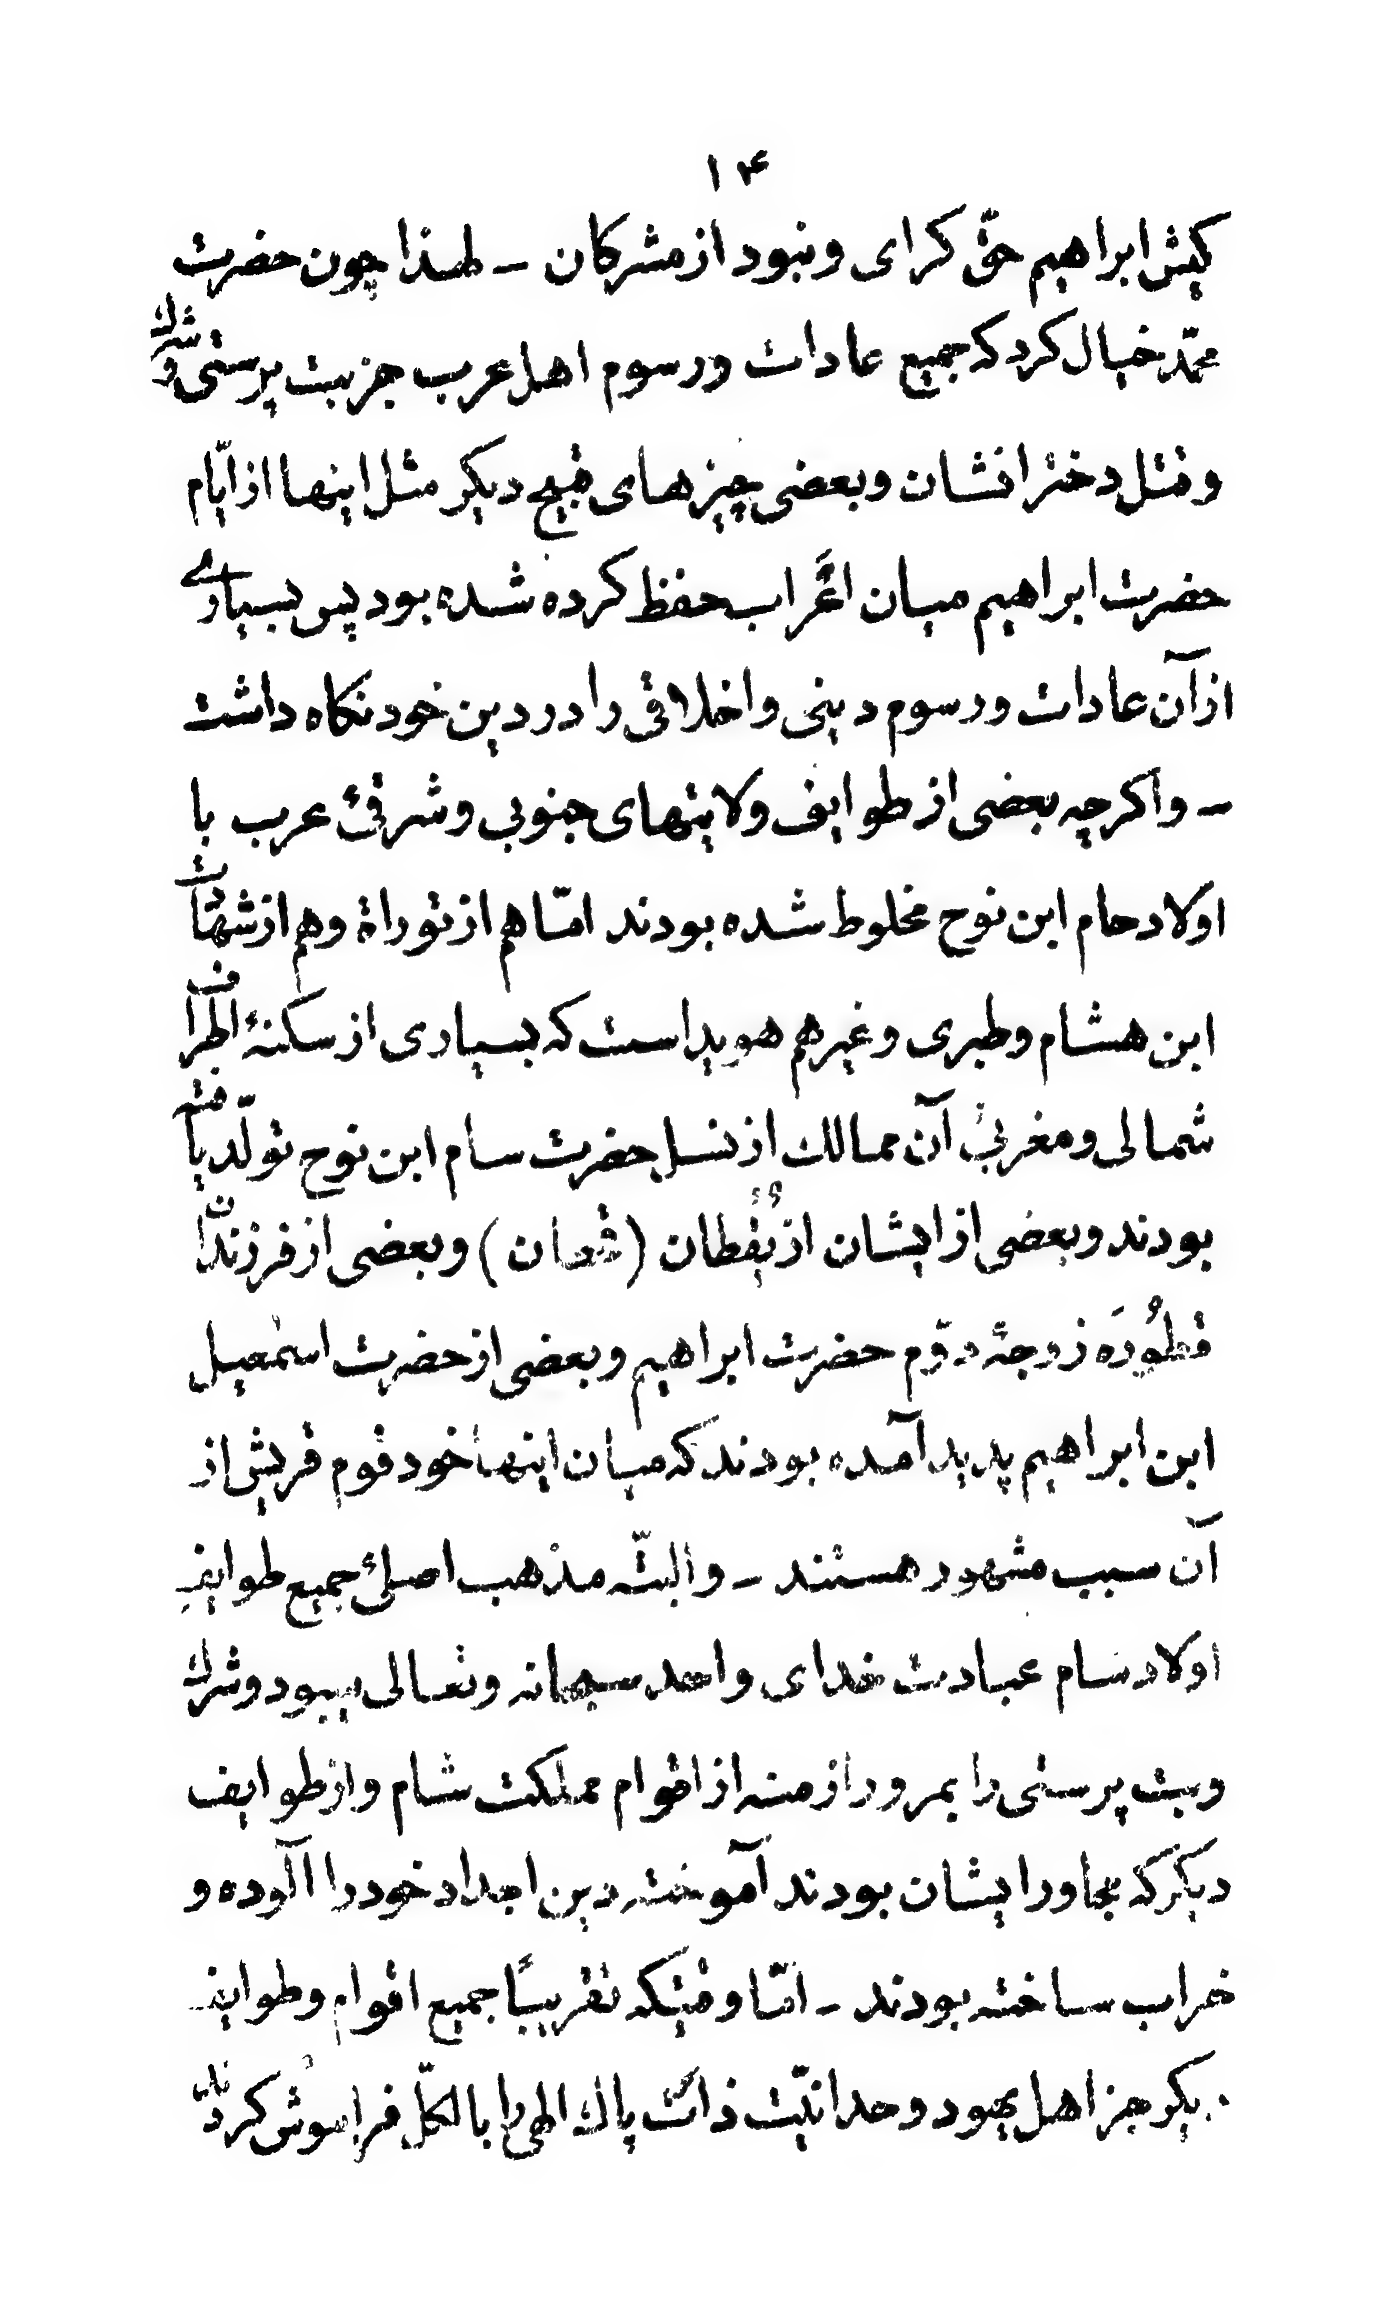 ۱۴
کیش ابراهیم حقّ کرای و نبود از مشرکان – لهذا چون حضرت
محمّد خیال کرد که جمیع عادات و رسوم اهل عرب جز بت پرستی و شرك
و قتل دخترانشان و بعضی چیزهای قبیح دیکر مثل اینها از ایّام
حضرت ابراهیم میان اَعْراب حفظ کرده شده بود پس بسیاری
از آن عادات و رسوم دینی و اخلاقی را در دین خود نکاه داشت
– و اکرچه بعضی از طوایف ولایتهای جنوبی و شرقیٔ عرب با
اولاد حام ابن نوح مخلوط شده بودند امّا هم از توراة و هم از شهادت
ابن هشام و طبری و غیرهم هویداست که بسیاری از سکنهٔ اطراف
شمالی و مغربیٔ آن ممالك از نسل حضرت سام ابن نوح تولّد یافته
بودند و بعضی از ایشان از یُقْطان (قحطان) و بعضی از فرزندان
قطُورَه زوجهٔ دوّم حضرت ابراهیم و بعضی از حضرت اسمٰعیل
ابن ابراهیم پدید آمده بودند که میان اینها خود قوم قریش از
آن سبب مشهور هستند – و البتّه مذهب اصلیٔ جمیع طوایفِ
اولاد سام عبادت خدای واحد سبحانه و تعالی میبود و شرك
و بت پرستی را بمرور ازمنه از اقوام مملکت شام و از طوایف
دیکر که مجاور ایشان بودند آموخته دین اجداد خود را آلوده و
خراب ساخته بودند – امّا وقتیکه تقریبًا جمیع اقوام و طوایف
دیکر جز اهل یهود وحدانیّت ذات پاك الهی را بالکلّ فراموش کردند